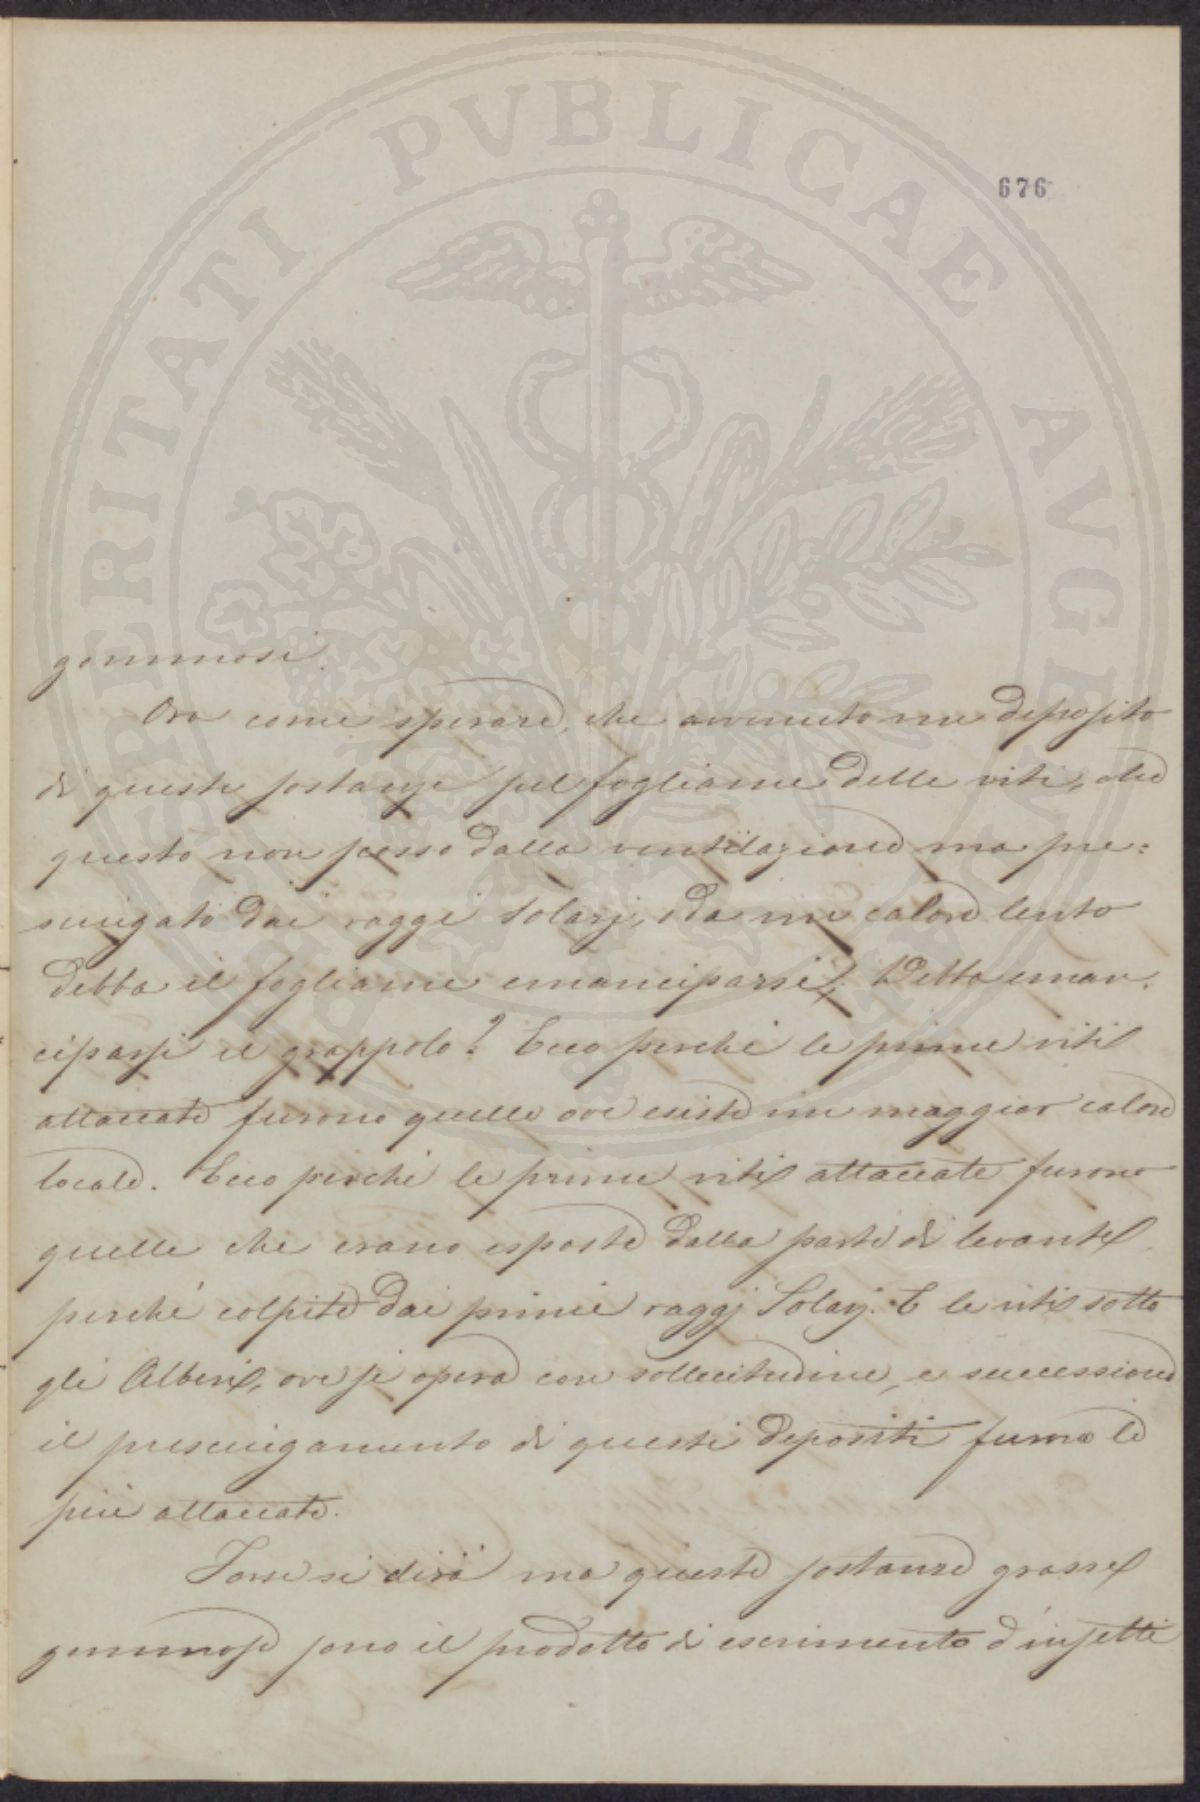 PROSPERITATI PVBLICAE AVGENDAE
676
gommosi.
Ora come sperare, che avvenuto un deposito
di queste sostanze sul fogliame delle viti, che
questo non scosso dalla ventilazione ma pre:
sciugato dai raggi Solarj, o da un calore lento
debba il fogliame emanciparsi? Debba eman.
ciparsi il grappolo? Ecco perchè le prime viti
attaccate furono quelle ove esiste un maggior calore
locale. Ecco perchè le prime viti attaccate furono
quelle che erano esposte dalla parte di levante
perchè colpite dai primi raggj Solarj. E le viti sotto
gli Alberi, ove si opera con sollecitudine, e successione
il presciugamento di questi depositi furono le
più attaccate.
Forse si dirà ma queste sostanze grasse
gommose sono il prodotto di escrimento d'insetti